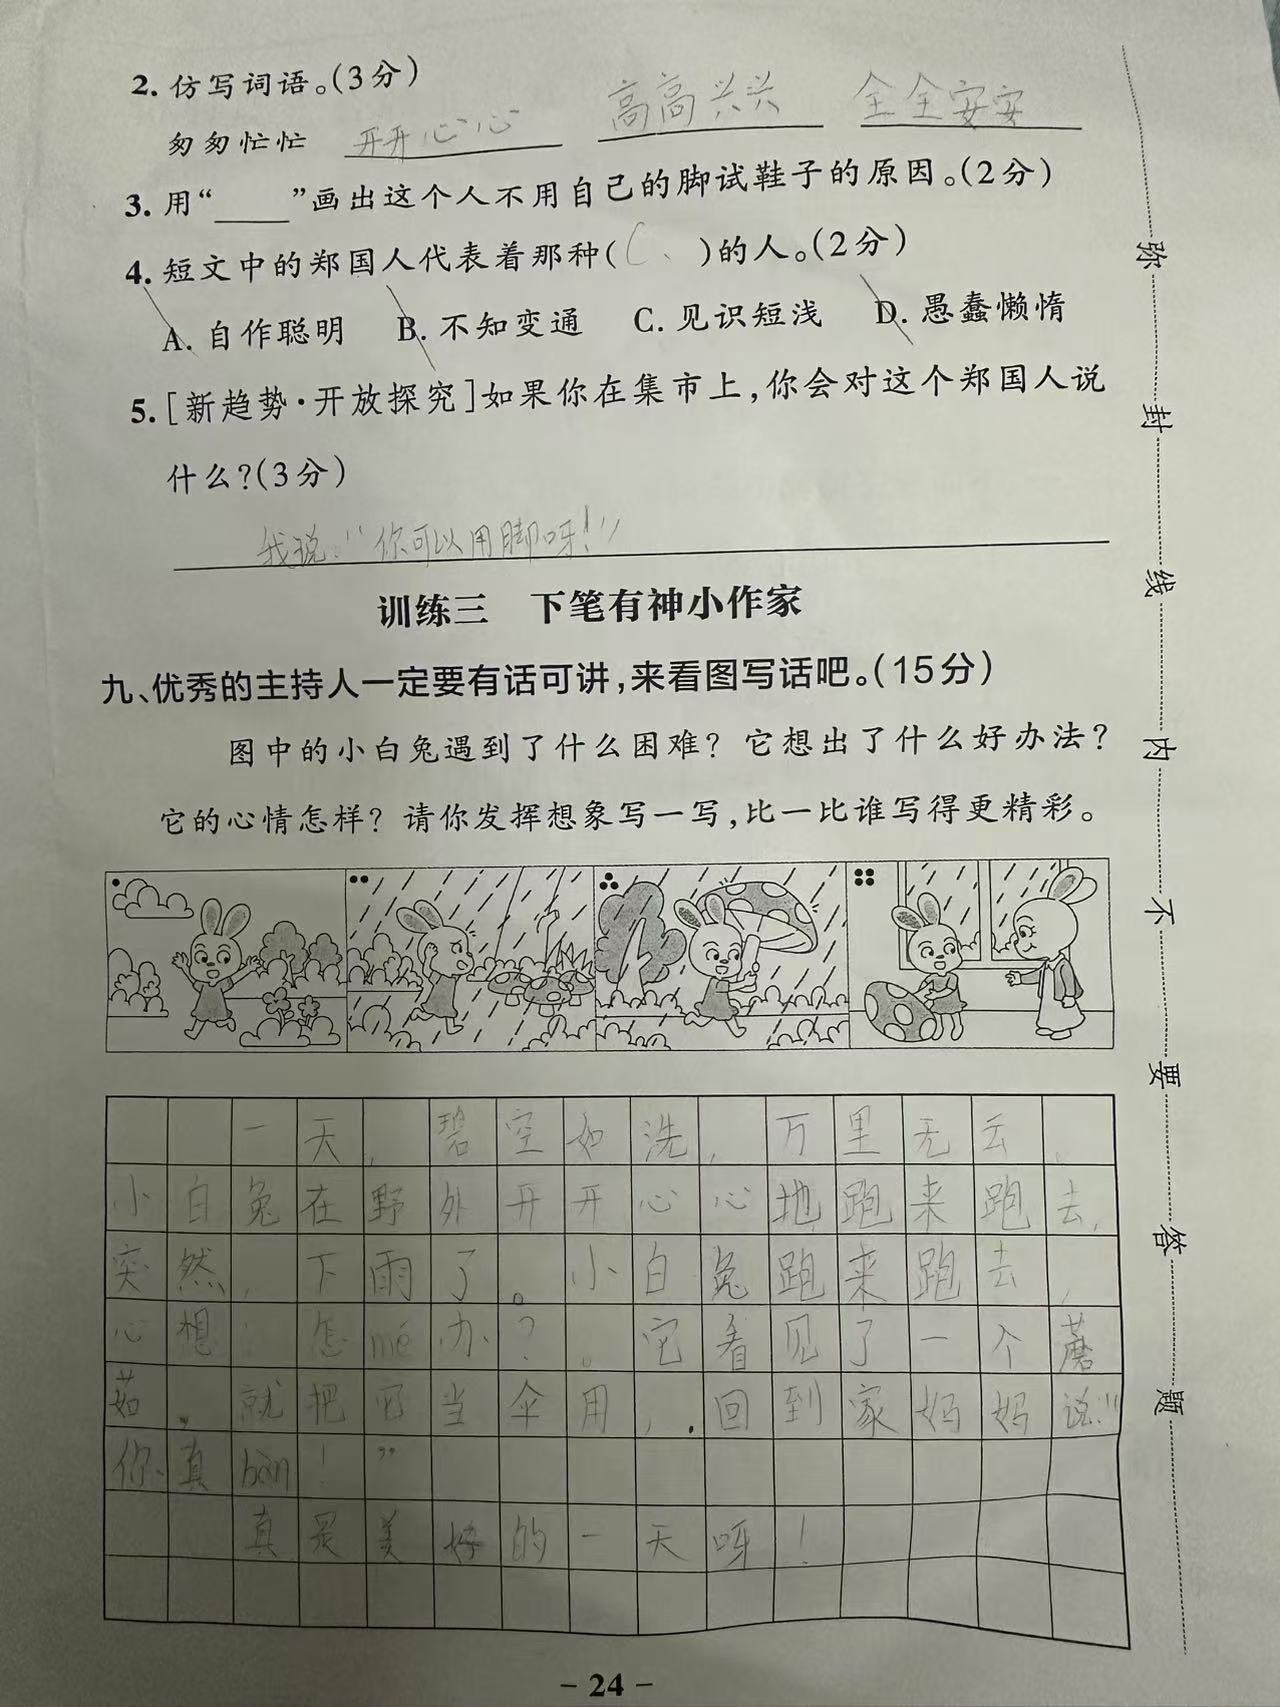 2. 仿写词语。(3分)
匆匆忙忙 开开心心 高高兴兴 全全安安
3. 用“____”画出这个人不用自己的脚试鞋子的原因。(2分)
4. 短文中的郑国人代表着那种( C、 )的人。(2分)
A. 自作聪明 B. 不知变通 C. 见识短浅 D. 愚蠢懒惰
5. [新趋势·开放探究]如果你在集市上,你会对这个郑国人说
什么?(3分)
我说:“你可以用脚呀!”
训练三 下笔有神小作家
九、优秀的主持人一定要有话可讲,来看图写话吧。(15分)
图中的小白兔遇到了什么困难? 它想出了什么好办法?
它的心情怎样? 请你发挥想象写一写,比一比谁写得更精彩。
一天,碧空如洗,万里无云,
小白兔在野外开开心心地跑来跑去,
突然,下雨了。小白兔跑来跑去,
心想:怎mé办?。它看见了一个蘑
菇,就把它当伞用,.回到家妈妈说:“
你真bàn!”
真是美好的一天呀!
弥封线内不要答题
- 24 -